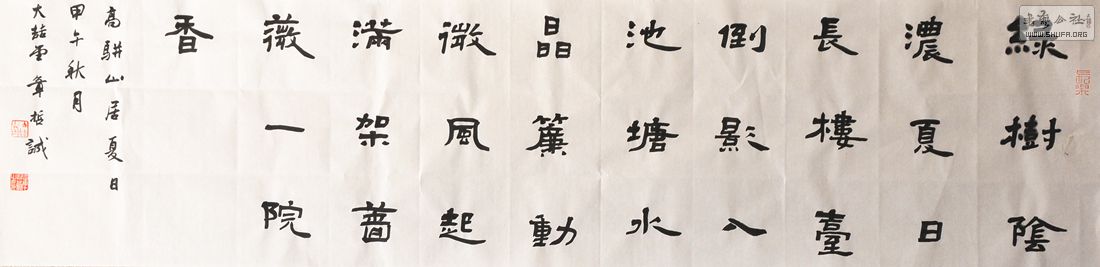 綠樹陰
濃夏日
長樓臺
倒影入
池塘水
晶簾動
微風起
滿架薔
薇一院
香
高駢山居夏日
甲午秋月
大喆堂章誠
書法公社
WWW.SHUFA.ORG